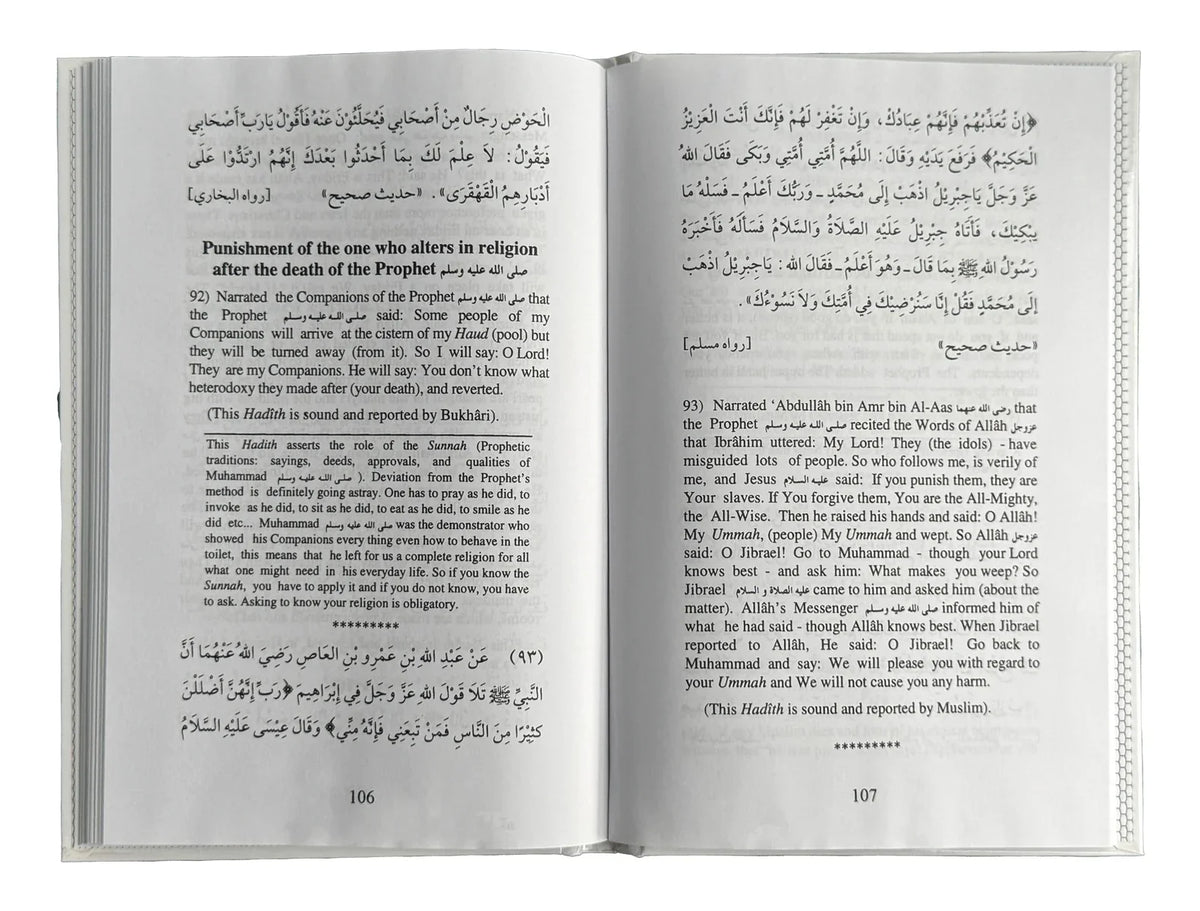 الْحَوْضِ رِجَالٌ مِنْ أَصْحَابِي فَيُحَلَّئُونَ عَنْهُ فَأَقُولُ يَارَبِّ أَصْحَابِي
فَيَقُولُ: لاَ عِلْمَ لَكَ بِمَا أَحْدَثُوا بَعْدَكَ إِنَّهُمُ ارْتَدُّوْا عَلَى
أَدْبَارِهِمُ الْقَهْقَرَى». «حديث صحيح» [رواه البخاري]
Punishment of the one who alters in religion
after the death of the Prophet صلى الله عليه وسلم
92) Narrated the Companions of the Prophet صلى الله عليه وسلم that
the Prophet صلى الله عليه وسلم said: Some people of my
Companions will arrive at the cistern of my Haud (pool) but
they will be turned away (from it). So I will say: O Lord!
They are my Companions. He will say: You don't know what
heterodoxy they made after (your death), and reverted.
(This Hadîth is sound and reported by Bukhâri).
This Hadith asserts the role of the Sunnah (Prophetic
traditions: sayings, deeds, approvals, and qualities of
Muhammad صلى الله عليه وسلم ). Deviation from the Prophet's
method is definitely going astray. One has to pray as he did, to
invoke as he did, to sit as he did, to eat as he did, to smile as he
did etc... Muhammad صلى الله عليه وسلم was the demonstrator who
showed his Companions every thing even how to behave in the
toilet, this means that he left for us a complete religion for all
what one might need in his everyday life. So if you know the
Sunnah, you have to apply it and if you do not know, you have
to ask. Asking to know your religion is obligatory.
*********
(٩٣) عَنْ عَبْدِ اللهِ بْنِ عَمْرِو بْنِ العَاصِ رَضِيَ اللهُ عَنْهُمَا أَنَّ
النَّبِيَّ ﷺ تَلَا قَوْلَ اللهِ عَزَّ وَجَلَّ فِي إِبْرَاهِيمَ ﴿رَبِّ إِنَّهُنَّ أَضْلَلْنَ
كَثِيْرًا مِنَ النَّاسِ فَمَنْ تَبِعَنِي فَإِنَّهُ مِنِّي﴾ وَقَالَ عِيْسَى عَلَيْهِ السَّلَامُ
106
﴿إِنْ تُعَذِّبْهُمْ فَإِنَّهُمْ عِبَادُكَ، وَإِنْ تَغْفِرْ لَهُمْ فَإِنَّكَ أَنْتَ الْعَزِيْزُ
الْحَكِيْمُ﴾ فَرَفَعَ يَدَيْهِ وَقَالَ: اللَّهُمَّ أُمَّتِي أُمَّتِي وَبَكَى فَقَالَ اللهُ
عَزَّ وَجَلَّ يَاجِبْرِيْلُ اذْهَبْ إِلَى مُحَمَّدٍ ـ وَرَبُّكَ أَعْلَمُ ـ فَسَلْهُ مَا
يبْكِيْكَ، فَأَتَاهُ جِبْرِيْلُ عَلَيْهِ الصَّلَاةُ وَالسَّلَامُ فَسَأَلَهُ فَأَخْبَرَهُ
رَسُوْلُ اللهِ ﷺ بِمَا قَالَ ـ وَهُوَ أَعْلَمُ ـ فَقَالَ الله: يَاجِبْرِيْلُ اذْهَبْ
إِلى مُحَمَّدٍ فَقُلْ إِنَّا سَنُرْضِيْكَ فِي أُمَّتِكَ وَلاَ نَسُوْءُكَ».
«حديث صحيح» [رواه مسلم]
93) Narrated 'Abdullâh bin Amr bin Al-Aas رضى الله عنهما that
the Prophet صلى الله عليه وسلم recited the Words of Allâh عزوجل
that Ibrâhim uttered: My Lord! They (the idols) - have
misguided lots of people. So who follows me, is verily of
me, and Jesus عليه السلام said: If you punish them, they are
Your slaves. If You forgive them, You are the All-Mighty,
the All-Wise. Then he raised his hands and said: O Allâh!
My Ummah, (people) My Ummah and wept. So Allâh عزوجل
said: O Jibrael! Go to Muhammad - though your Lord
knows best - and ask him: What makes you weep? So
Jibrael عليه الصلاة و السلام came to him and asked him (about the
matter). Allâh's Messenger صلى الله عليه وسلم informed him of
what he had said - though Allâh knows best. When Jibrael
reported to Allâh, He said: O Jibrael! Go back to
Muhammad and say: We will please you with regard to
your Ummah and We will not cause you any harm.
(This Hadîth is sound and reported by Muslim).
*********
107